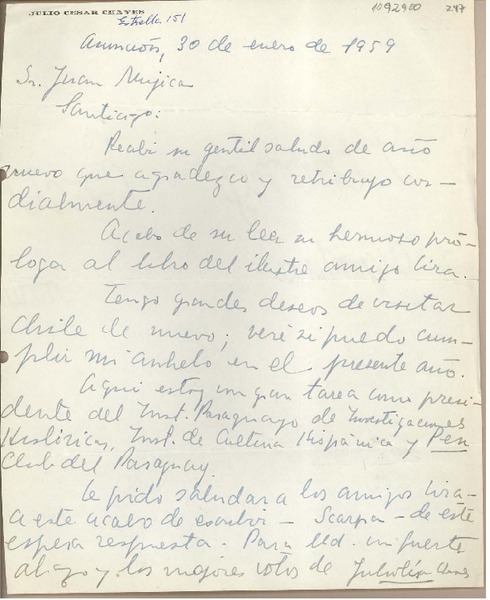 JULIO CESAR CHAVES
Estrella 151
1092900 247
Asunción, 30 de enero de 1959
Sr. Juan Mujica
Santiago:
Recibí su gentil saludo de año
nuevo que agradezco y retribuyo cor-
dialmente.
Acabo de su leer su hermoso pró-
logo al libro del ilustre amigo Lira.
Tengo grandes deseos de visitar
Chile de nuevo; veré si puedo cum-
plir mi anhelo en el presente año.
Aquí estoy con gran tarea como presi-
dente del Inst. Paraguayo de Investigaciones
Históricas, Inst. de Cultura Hispánica y Pen
Club del Paraguay.
Le pido saludar a los amigos Lira-
a este acabo de escribir - Scarpa - de este
espero respuesta. Para Ud. un fuerte
abrazo y los mejores votos de Julio César Chaves